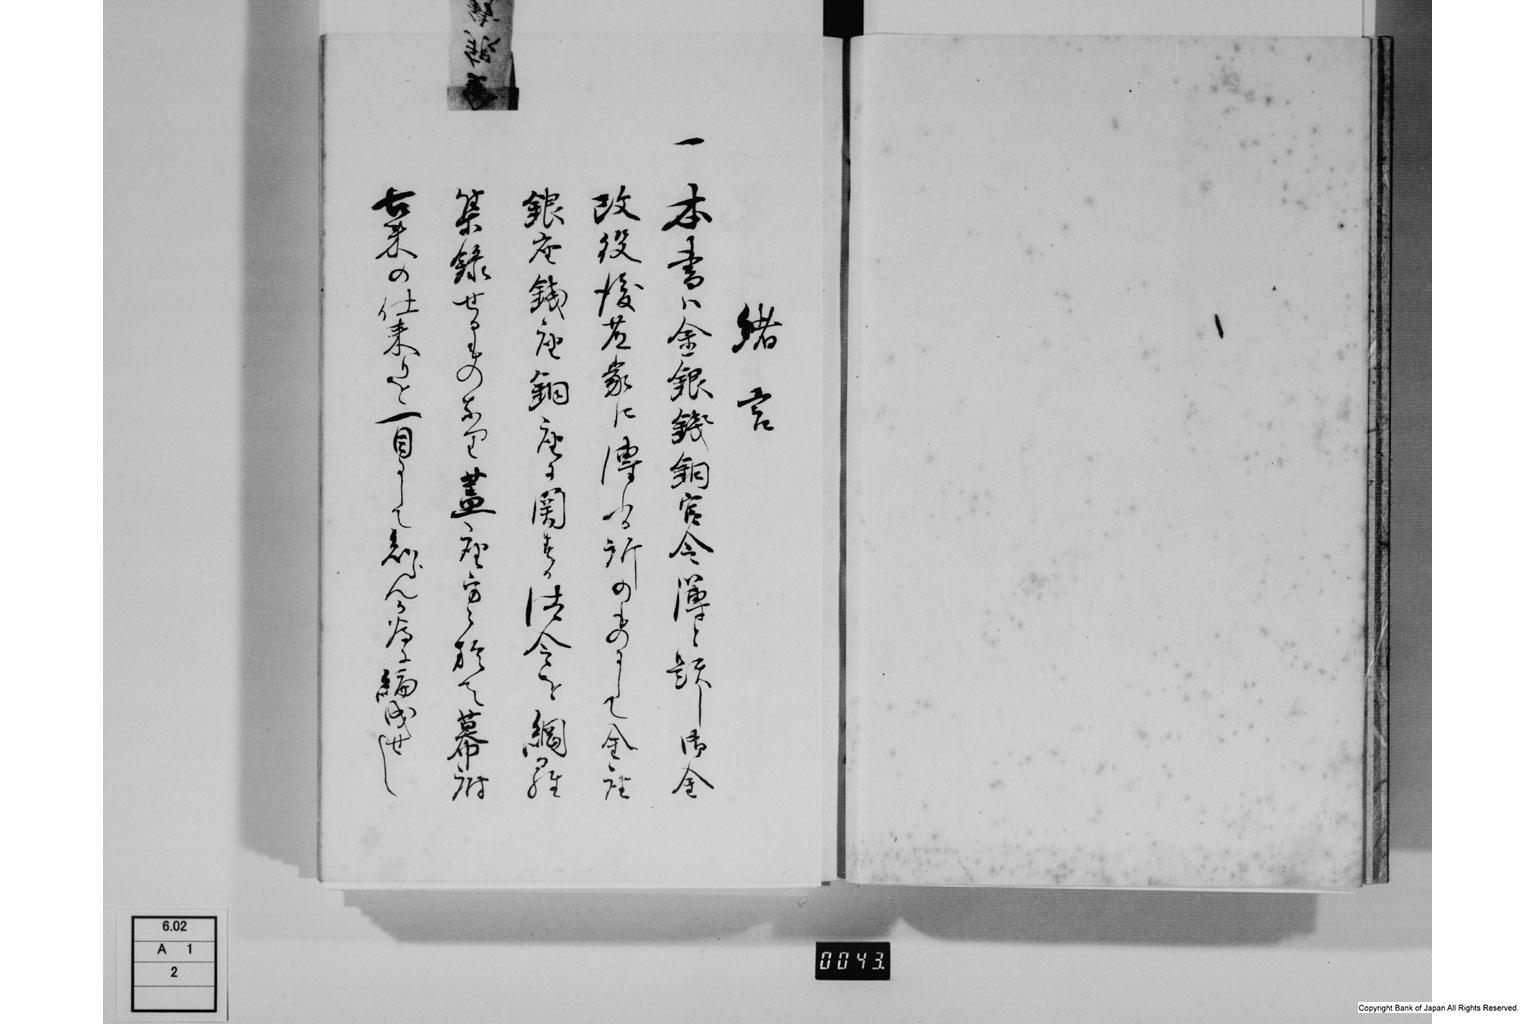 緒言
一 本書ハ金銀銭銅官令簿と題し御金
改役後藤家に傳る所のものにして金座
銀座銭座銅座に関する法令を網羅
集録せるものなり蓋座方に於て幕府
古来の仕来りを一目にして知らんが為に編成せし
6.02
A 1
2
0043.
Copyright Bank of Japan All Rights Reserved.